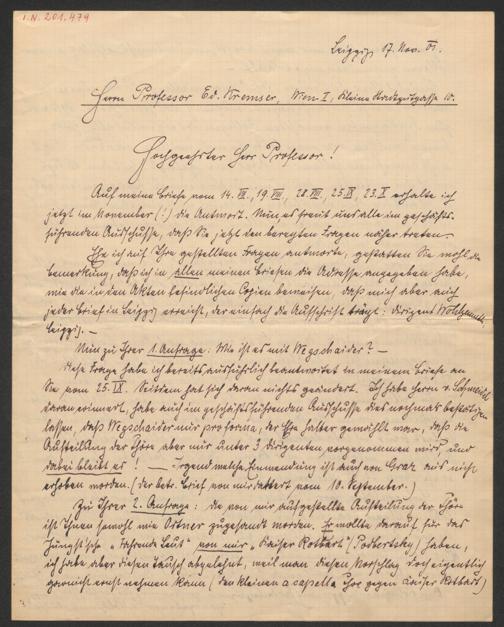 I.N. 201.479
Leipzig, 17. Nov. 01.
Herrn Professor Ed. Kremser, Wien I, kleine 10.
Hochgeehrter Herr Professor!
Auf meine Briefe vom 14. VII., 19. VIII., 28. VIII., 25. IX, 23. X erhalte ich
jetzt im November (!) die Antwort. Nun es freut uns alle im geschäfts-
führenden Ausschusse, daß Sie jetzt den beregten Fragen näher treten.
Ehe ich auf Ihre gestellten Fragen antworte, gestatten Sie wohl die
Bemerkung, daß ich in allen meinen Briefen die Adresse angegeben habe,
wie die in den Akten befindlichen Copien beweisen, daß mich aber auch
jeder Brief in Leipzig erreicht, der einfach die Aufschrift trägt: Dirigent Wohlgemuth
Leipzig. —
Nun zu Ihrer 1. Anfrage: Wie ist es mit Wegschaider? —
Diese Frage habe ich bereits ausführlich beantwortet in meinem Briefe an
Sie vom 25. IX. Seitdem hat sich daran nichts geändert. Ich habe Herrn v. Schmeidel
daran erinnert, habe auch im geschäftsführenden Ausschusse dies nochmals bestätigen
lassen, daß Wegschaider nur pro forma, der Ehre halber gewählt war, daß die
Aufteilung der Chöre aber nur unter 3 Dirigenten vorgenommen wird, und
dabei bleibt es! — Irgend welche Einwendung ist auch von Graz aus nicht
erhoben worden. (der betr. Brief von mir datiert vom 10. September.)
Zu Ihrer 2. Anfrage: Die von mir aufgestellte Aufteilung der Chöre
ist Ihnen sowohl wie Ortner zugesandt worden. Er wollte darauf für das
Jüngst'sche „Fahrende Leut" von mir „Kaiser Rotbart" (Podbertsky) haben,
ich habe aber diesen Tausch abgelehnt, weil man diesen Vorschlag doch eigentlich
garnicht ernst nehmen kann (den kleinen a capella Chor gegen Kaiser Rotbart)